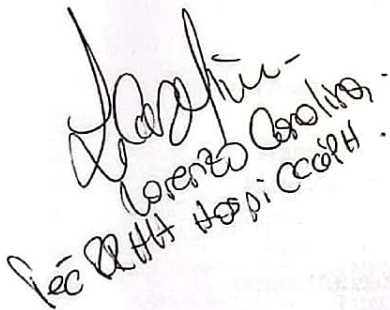 Lorenzo Carolina.
Téc RRHH Hospi CCOPH.